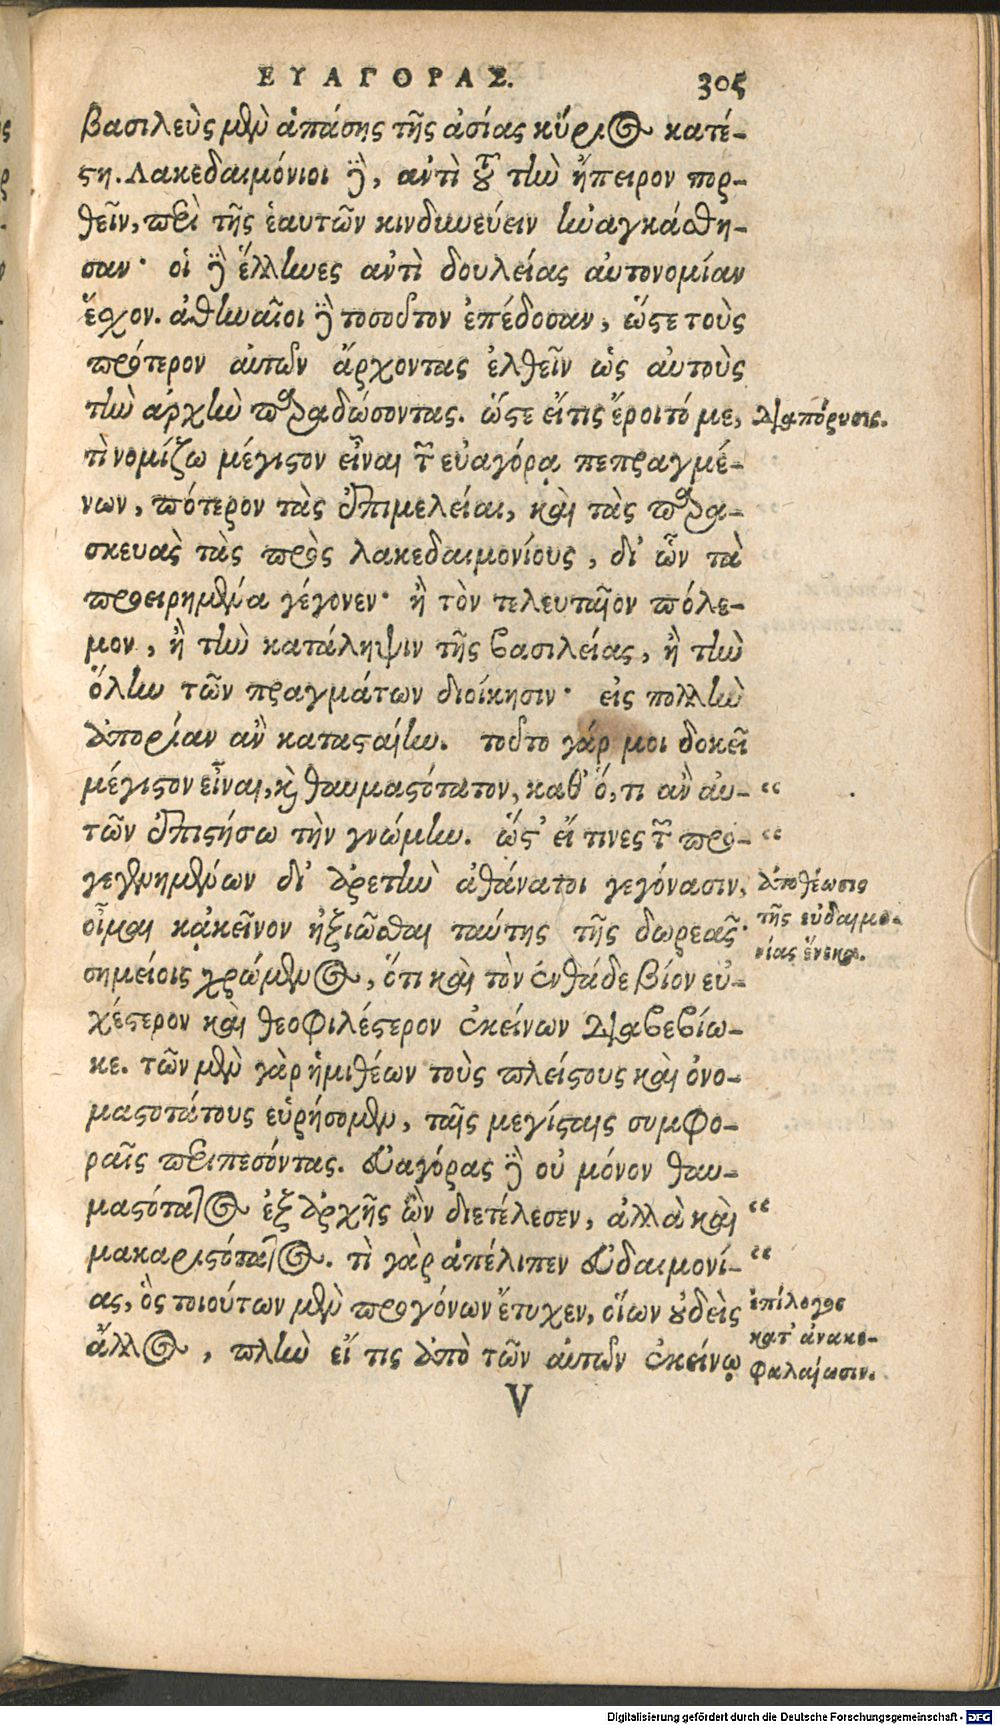 ΕΥΑΓΟΡΑΣ. 305
βασιλεὺς μὲν ἁπάσης τῆς ἀσίας κύριος κατέ-
στη. Λακεδαιμόνιοι δὲ, ἀντὶ τοῦ τὴν ἤπειρον πορ-
θεῖν, περὶ τῆς ἑαυτῶν κινδυνεύειν ἠναγκάσθη-
σαν· οἱ δὲ ἕλληνες ἀντὶ δουλείας αὐτονομίαν
ἔσχον. ἀθηναῖοι δὲ τοσοῦτον ἐπέδοσαν, ὥστε τοὺς
πρότερον αὐτῶν ἄρχοντας ἐλθεῖν ὡς αὐτοὺς
τὴν ἀρχὴν παραδώσοντας. ὥστε εἴ τις ἔροιτό με,
διαπόρησις.
τί νομίζω μέγιστον εἶναι τῶν εὐαγόρᾳ πεπραγμέ-
νων, πότερον τὰς ἐπιμελείαι, καὶ τὰς παρα-
σκευὰς τὰς πρὸς λακεδαιμονίους, δι' ὧν τὰ
προειρημένα γέγονεν· ἢ τὸν τελευταῖον πόλε-
μον, ἢ τὴν κατάληψιν τῆς βασιλείας, ἢ τὴν
ὅλην τῶν πραγμάτων διοίκησιν· εἰς πολλὴν
ἀπορίαν ἂν κατασταίην. τοῦτο γάρ μοι δοκεῖ
μέγιστον εἶναι, καὶ θαυμαστότατον, καθ' ὅ, τι ἂν αὐ- “
τῶν ἐπιστήσω τὴν γνώμην. ὥστ' εἴ τινες τῶν προ- “
γεγενημένων δι' ἀρετὴν ἀθάνατοι γεγόνασιν,
ἀποθέωσις
οἶμαι κἀκεῖνον ἠξιῶσθαι ταύτης τῆς δωρεᾶς·
τῆς εὐδαιμο-
νίας ἕνεκα.
σημείοις χρώμενος, ὅτι καὶ τὸν ἐνθάδε βίον εὐ-
χέστερον καὶ θεοφιλέστερον ἐκείνων διαβεβίω-
κε. τῶν μὲν γὰρ ἡμιθέων τοὺς πλείστους καὶ ὀνο-
μαστοτάτους εὑρήσομεν, ταῖς μεγίσταις συμφο-
ραῖς περιπεσόντας. Εὐαγόρας δὲ οὐ μόνον θαυ-
μαστότατος ἐξ ἀρχῆς ὢν διετέλεσεν, ἀλλὰ καὶ “
μακαριστότατος. τί γὰρ ἀπέλιπεν εὐδαιμονί- “
ας, ὃς τοιούτων μὲν προγόνων ἔτυχεν, οἵων οὐδεὶς
ἐπίλογος
κατ' ἀνακε-
φαλαίωσιν.
ἄλλος, πλὴν εἴ τις ἀπὸ τῶν αὐτῶν ἐκείνῳ
V
Digitalisierung gefördert durch die Deutsche Forschungsgemeinschaft - DFG